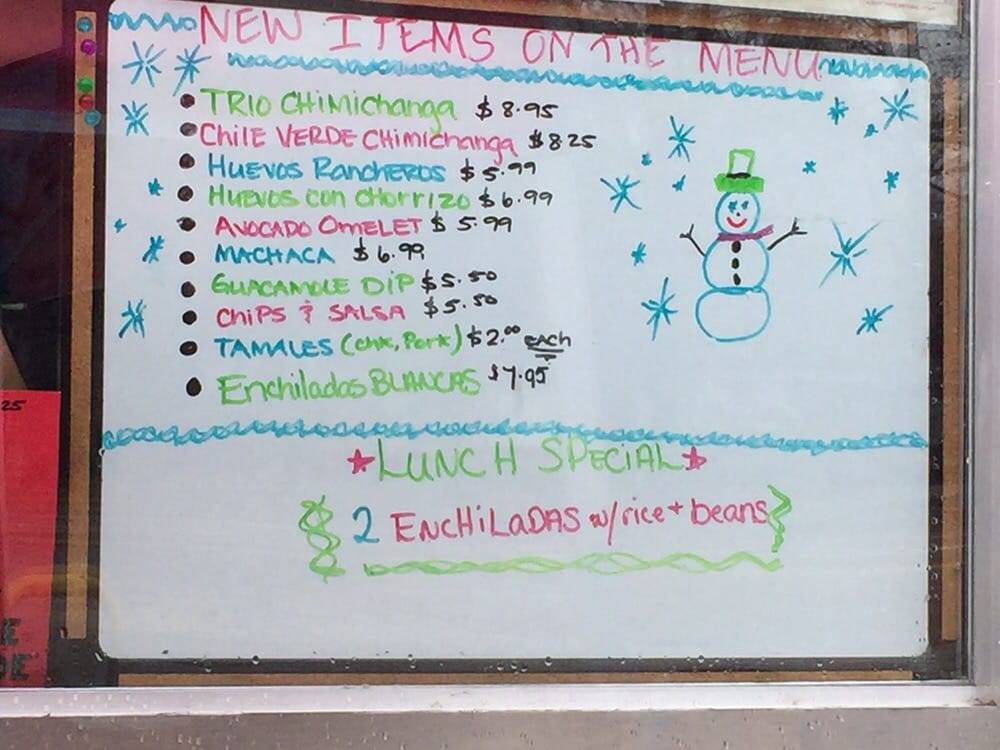 NEW ITEMS ON THE MENU
• TRIO CHimichanga $8.95
• CHILE VERDE CHimichanga $8.25
• HUEVOS RancHEROS $5.99
• HUEVOS con CHORRIZO $6.99
• AVOCADO OMELET $5.99
• MACHACA $6.99
• GUACAMOLE DIP $5.50
• CHIPS & SALSA $5.50
• TAMALES (CHK, Pork) $2.00 EACH
• Enchiladas BLANCAS $7.95
LUNCH SPECIAL
2 ENCHiLaDAS w/rice + beans
25